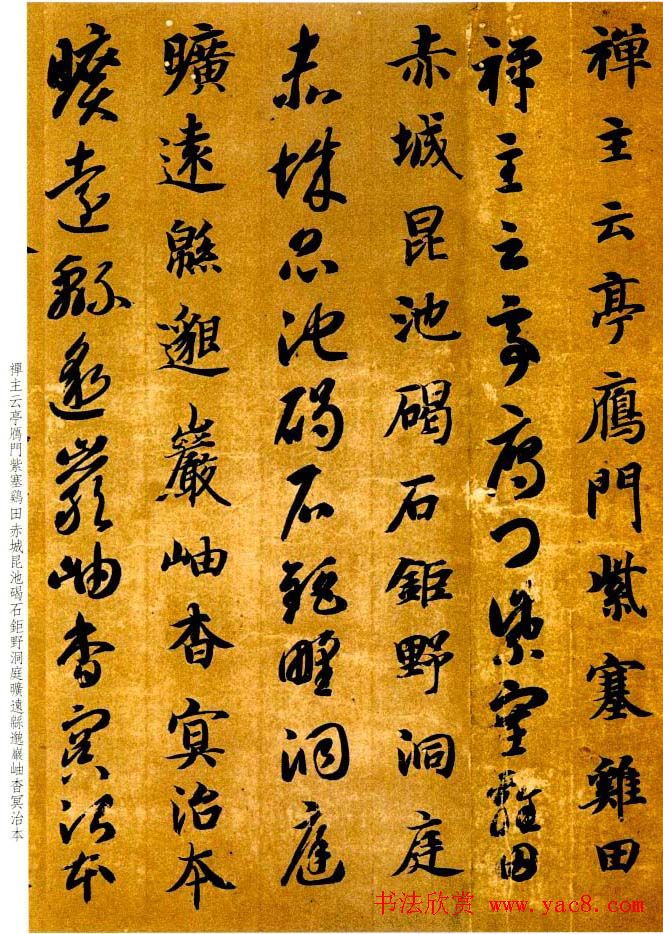 禪主云亭鴈門紫塞雞田
禪主云亭鴈門紫塞雞田
赤城昆池碣石鉅野洞庭
赤城昆池碣石鉅野洞庭
曠遠緜邈巖岫杳冥治本
曠遠緜邈巖岫杳冥治本
禪主云亭鴈門紫塞鷄田赤城昆池碣石鉅野洞庭曠遠緜邈巖岫杳冥治本
书法欣赏 www.yac8.com